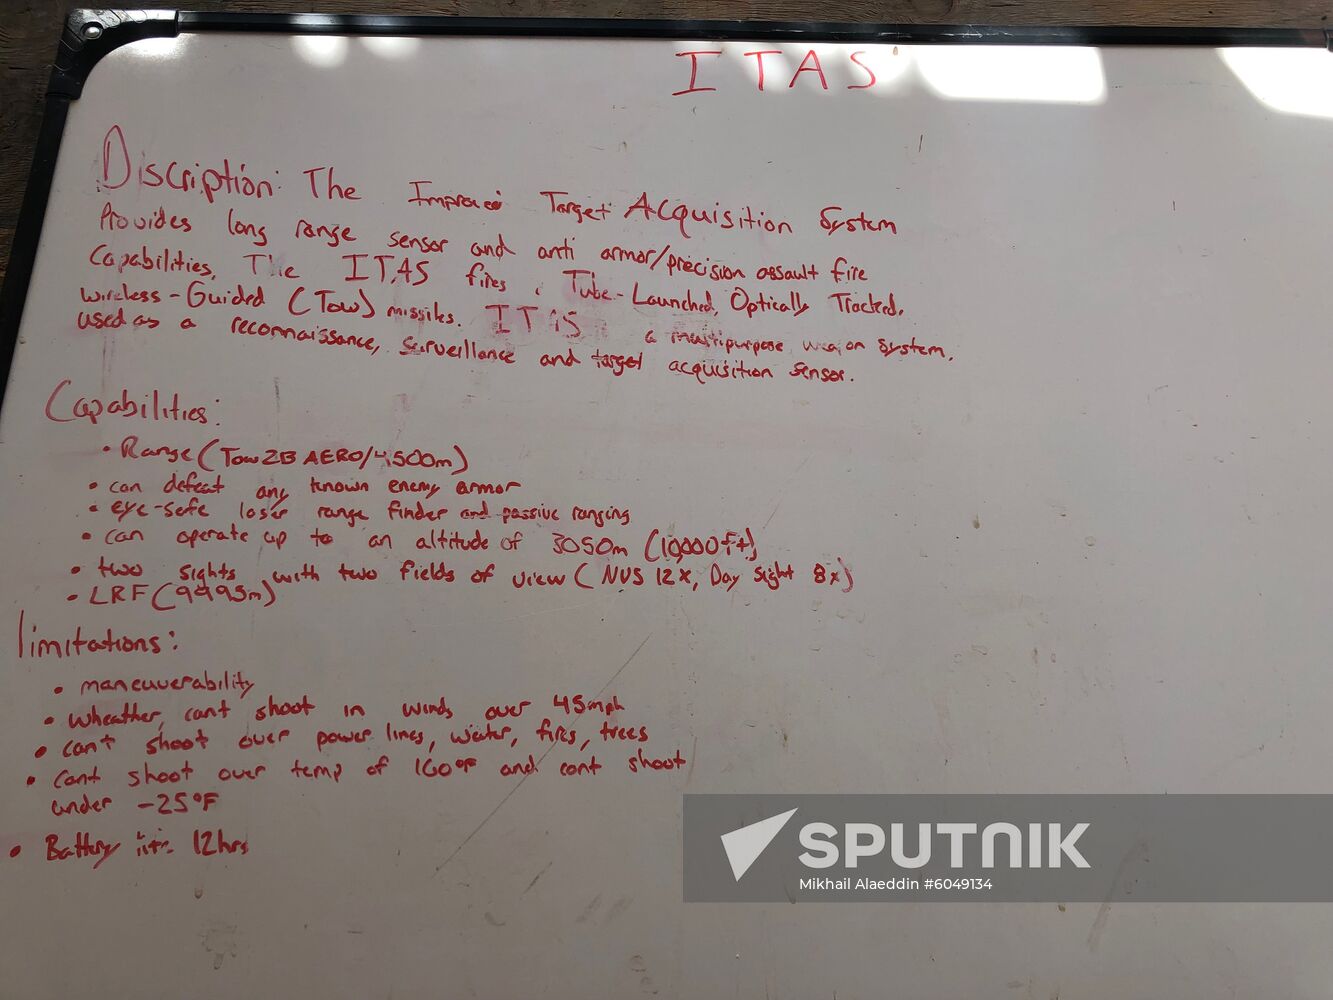 ITAS
Discription: The Improved Target Acquisition System
Provides long range sensor and anti armor/precision assault fire
Capabilities. The ITAS fires Tube-Launched, Optically Tracked,
wireless-Guided (Tow) missiles. ITAS a multipurpose weapon system,
used as a reconnaissance, surveillance and target acquisition sensor.
Capabilities:
• Range (Tow2B AERO/4,500m)
• can defeat any known enemy armor
• eye-safe laser range finder and passive ranging
• can operate up to an altitude of 3050m (10,000ft)
• two sights with two fields of view (NVS 12x, Day sight 8x)
• LRF (9995m)
limitations:
• maneuverability
• wheather, cant shoot in winds over 45mph
• can't shoot over power lines, water, fires, trees
• cant shoot over temp of 160°F and cant shoot
under -25°F
• Battery 12hrs
SPUTNIK
Mikhail Alaeddin #6049134